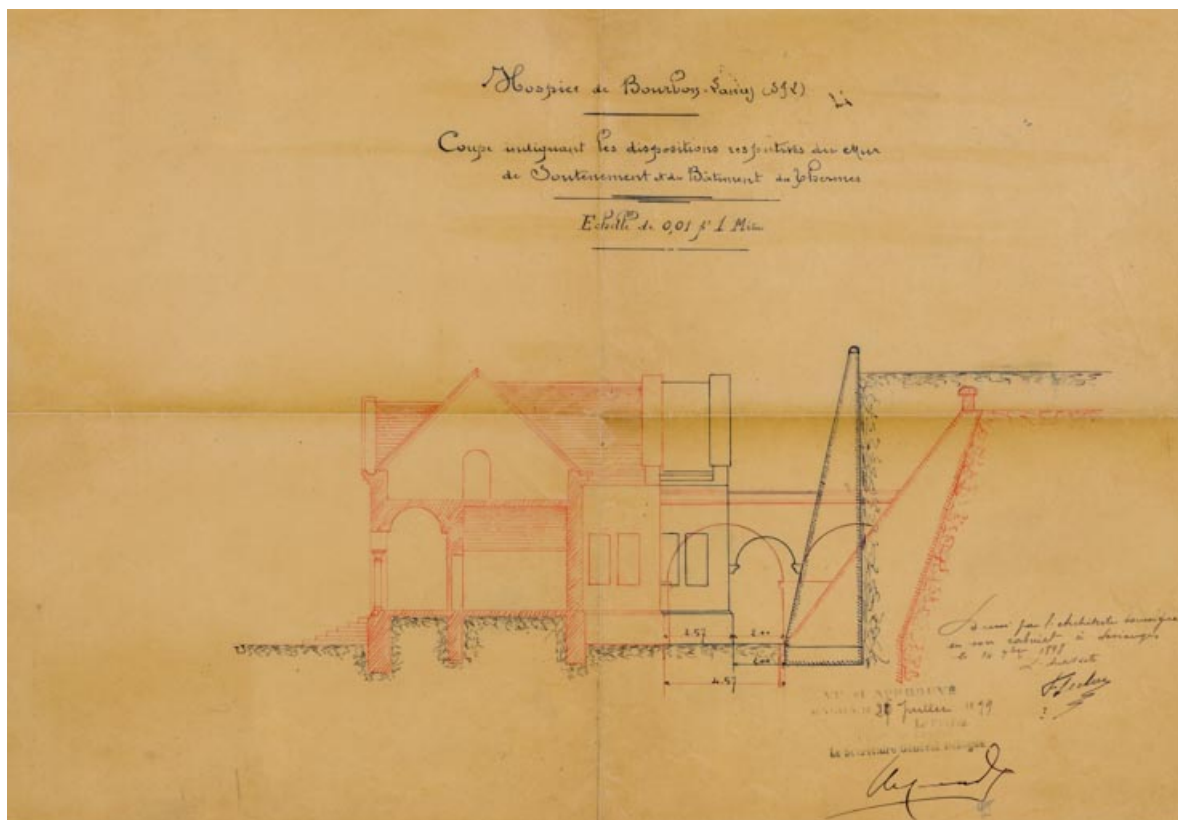 Hospice de Bourbon-Lancy (S&L)
Coupe indiquant les dispositions respectives du Mur
de Soutènement & du Bâtiment des Thermes
Echelle de 0,01 pr 1 Mètre
2.57 2.00
2.00
4.57
Dressé par l'Architecte soussigné
en son cabinet à
le 10 9bre 1898
L'Architecte
VU ET APPROUVÉ
28 Juillet 1899
Le Préfet
Le Secrétaire Général Délégué